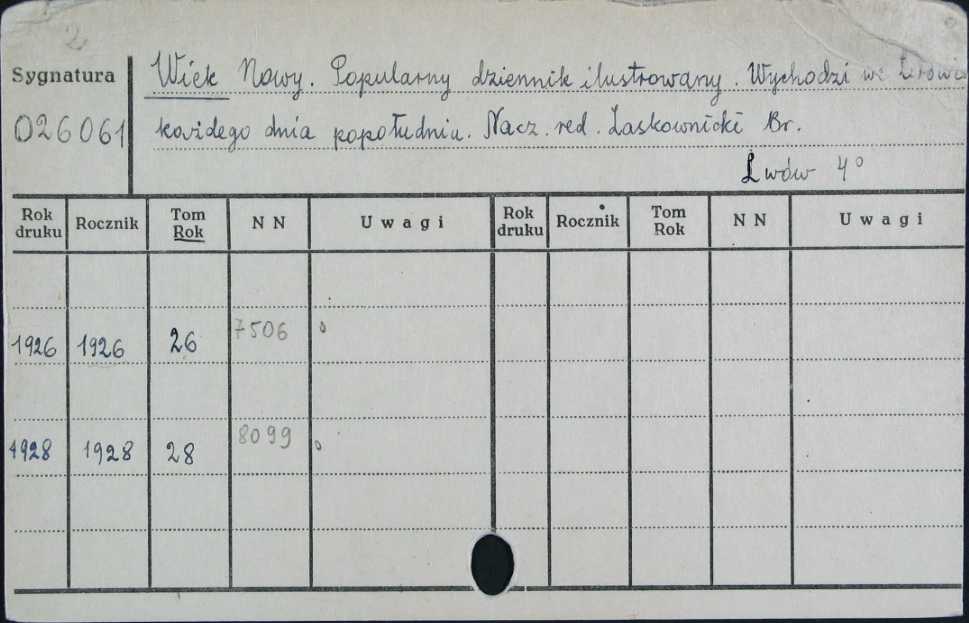 2
Sygnatura
026061
Wiek Nowy. Popularny dziennik ilustrowany. Wychodzi we Lwowie
każdego dnia popołudniu. Nacz. red. Laskownicki Br.
Lwów 4°
Rok druku Rocznik Tom Rok N N Uwagi Rok druku Rocznik Tom Rok N N Uwagi
1926 1926 26 7506
1928 1928 28 8099